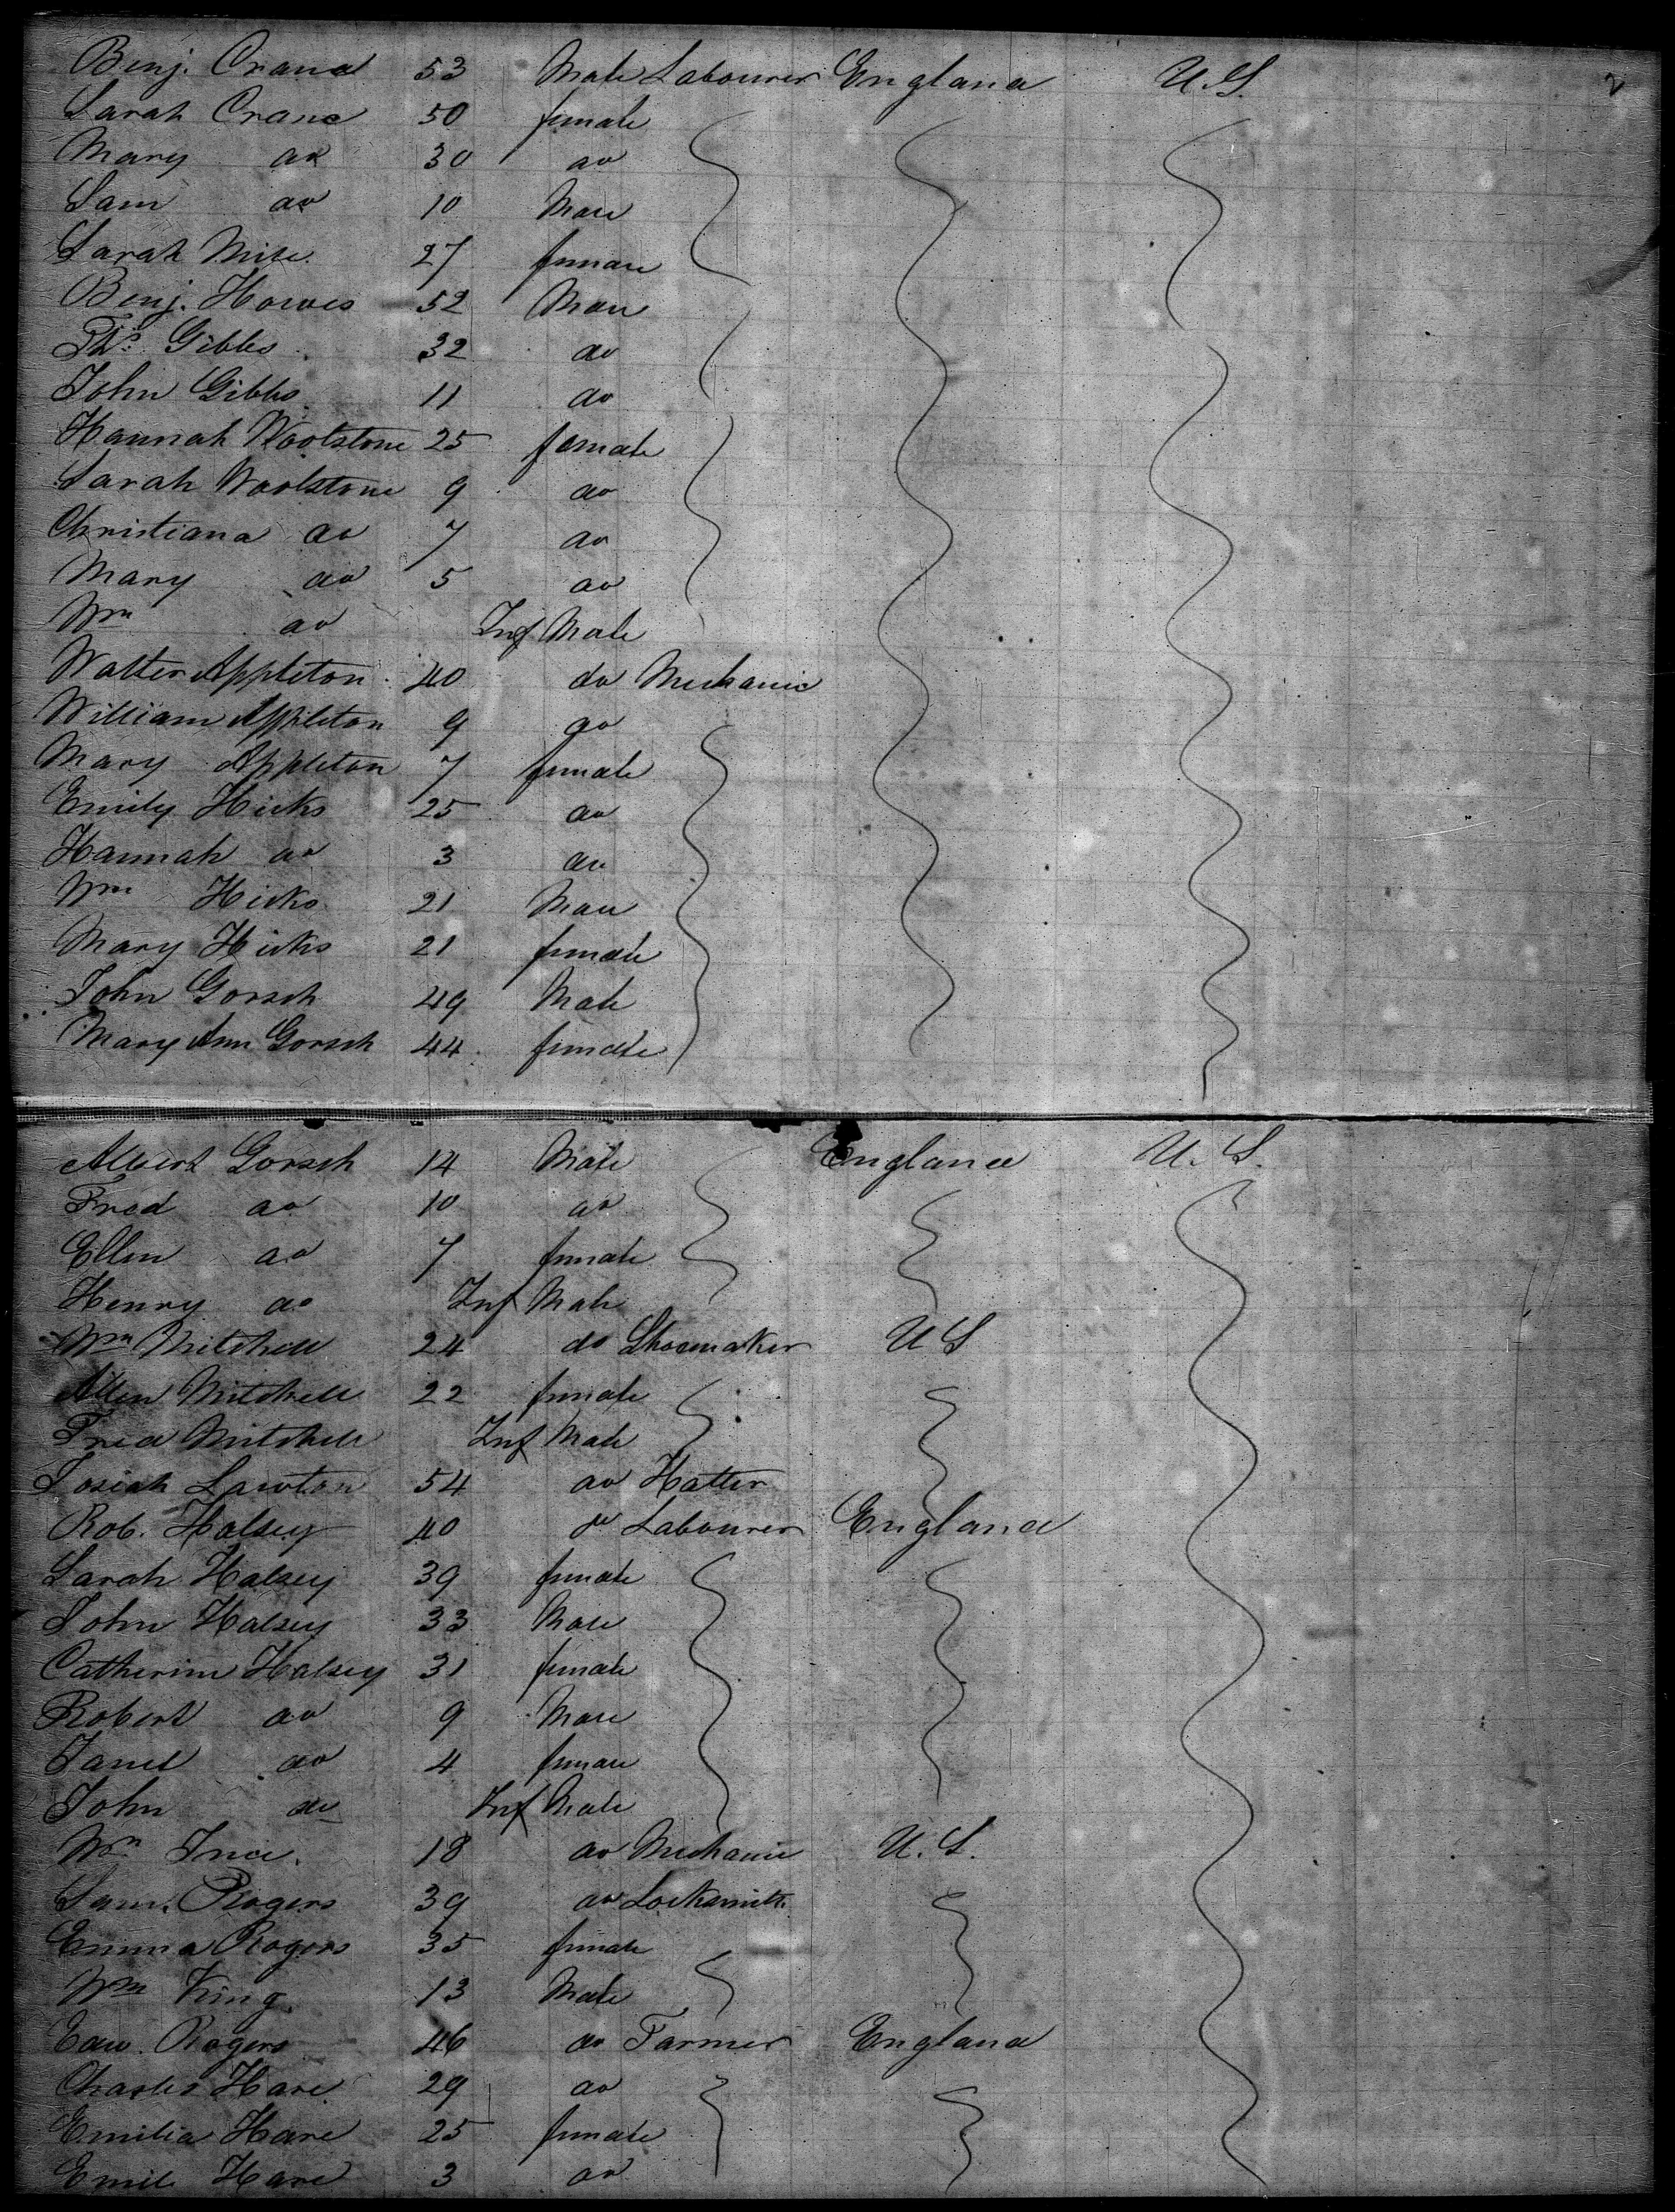 2
Benj. Crane 53 Male Labourer England U.S.
Sarah Crane 50 female
Mary do 30 do
Sam do 10 Male
Sarah Mile 27 female
Benj. Howes 52 Male
Thos. Gibbs 32 do
John Gibbs 11 do
Hannah Woolstone 25 female
Sarah Woolstone 9 do
Christiana do 7 do
Mary do 5 do
Wm do Inf Male
Walter Appleton 40 do Mechanic
William Appleton 9 do
Mary Appleton 7 female
Emily Hicks 25 do
Hannah do 3 do
Wm Hicks 21 Male
Mary Hicks 21 female
John Gorsch 49 Male
Mary Ann Gorsch 44 female
Albert Gorsch 14 Male England U.S.
Fred do 10 do
Ellen do 7 female
Henry do Inf Male
Wm Mitchell 24 do Shoemaker U S
Allen Mitchell 22 female
Fred Mitchell Inf Male
Josiah Lawton 54 do Hatter
Rob. Halsey 40 do Labourer England
Sarah Halsey 39 female
John Halsey 33 Male
Catherine Halsey 31 female
Robert do 9 Male
Janet do 4 female
John do Inf Male
Wm 18 do Mechanic U.S.
Sam. Rogers 39 do Locksmith
Emma Rogers 35 female
Wm King 13 Male
Edw. Rogers 46 do Farmer England
Charles Hare 29 do
Emilia Hare 25 female
Emile Hare 3 do